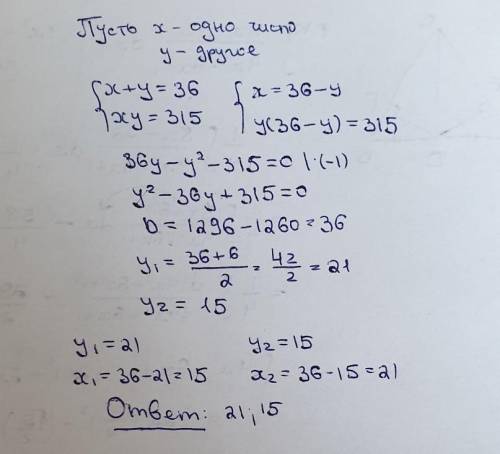 Пусть x - одно число
y - другое
{x+y=36 {x=36-y
{xy=315 {y(36-y)=315
36y-y²-315=0 |·(-1)
y²-36y+315=0
D=1296-1260=36
y₁=(36+6)/2=42/2=21
y₂=15
y₁=21 y₂=15
x₁=36-21=15 x₂=36-15=21
Ответ: 21; 15